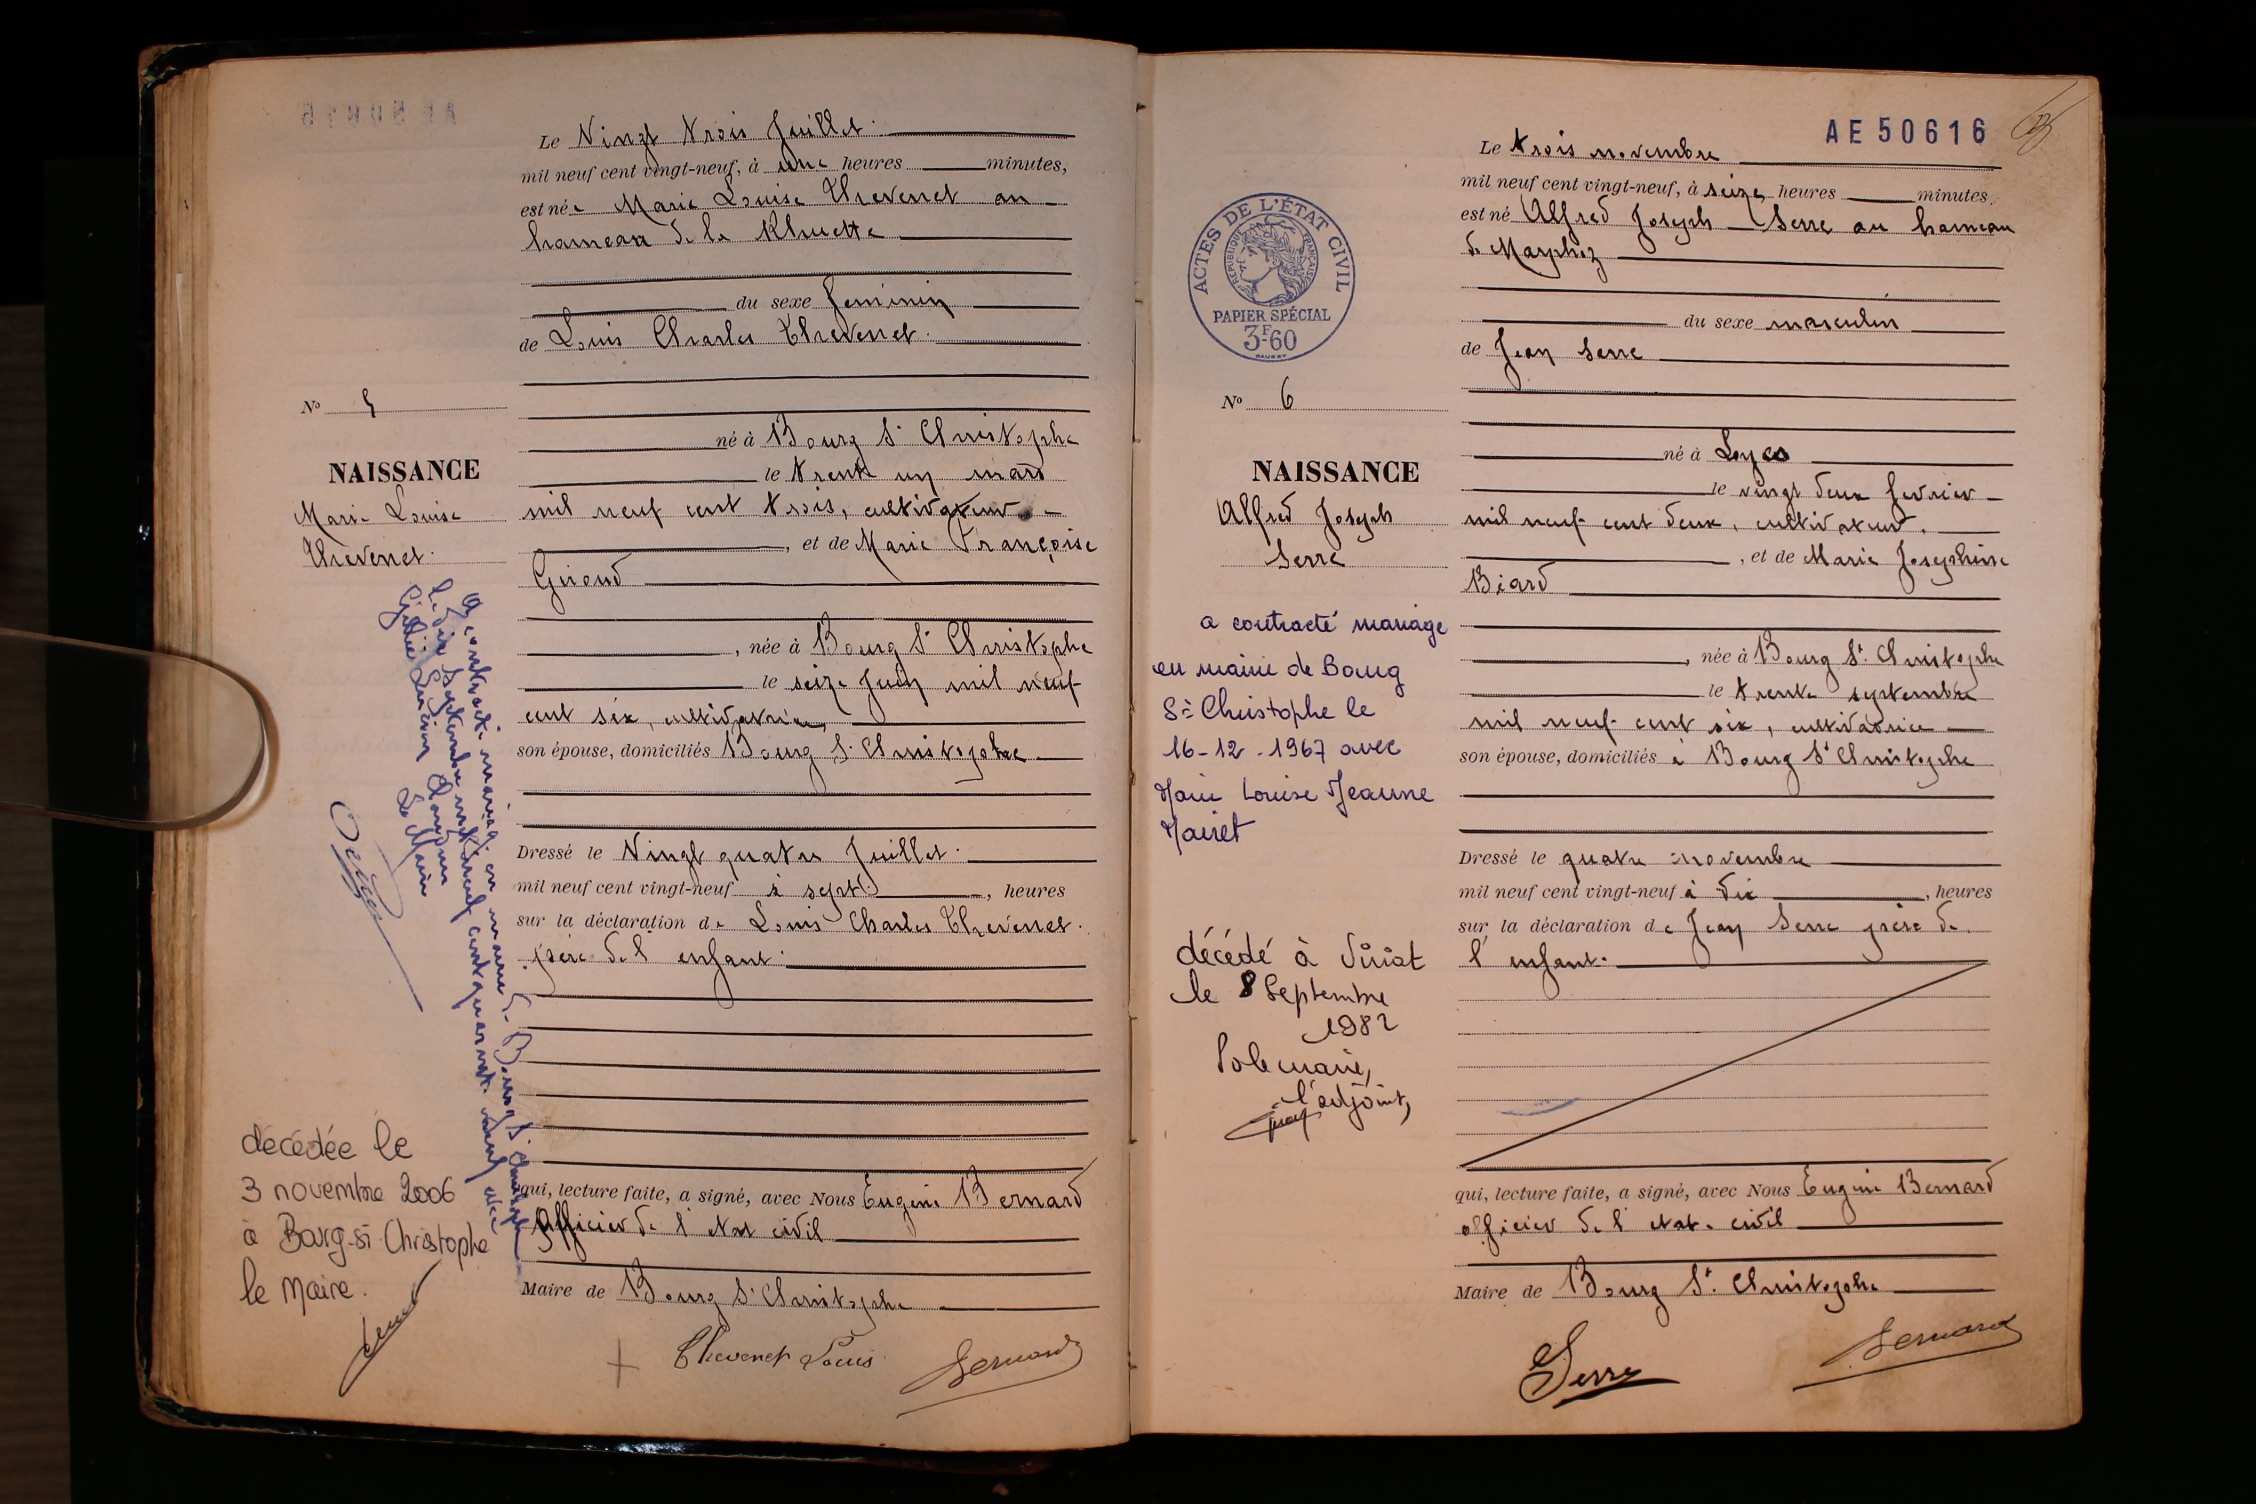 Le Vingt Trois Juillet.
mil neuf cent vingt-neuf, à une heures minutes,
est née Marie Louise Thevenet au
hameau de la
du sexe feminin
de Louis Charles Thevenet.
No 5
né à Bourg St Christophe
NAISSANCE
le trente un mars
Marie Louise
mil neuf cent trois, cultivateur
Thevenet.
, et de Marie Françoise
Giroud
, née à Bourg St Christophe
le seize Juin mil neuf
cent six, cultivatrice,
son épouse, domiciliés Bourg St Christophe
Dressé le Vingt quatre Juillet.
mil neuf cent vingt-neuf à sept , heures
sur la déclaration de Louis Charles Thevenet.
père de l'enfant.
A contracté mariage en mairie de Bourg St Christophe
le dix septembre mil neuf cent quarante neuf avec
Lucien
Le Maire
décédée le
3 novembre 2006
à Bourg-St-Christophe
le Maire.
qui, lecture faite, a signé, avec Nous Eugène Bernard
Officier de l'etat civil
Maire de Bourg St Christophe
Thevenet Louis
Bernard
AE 50616
Le trois novembre
mil neuf cent vingt-neuf, à seize heures minutes,
est né Alfred Joseph Serre au hameau
de Marphoz
ACTES DE L'ÉTAT CIVIL
RÉPUBLIQUE FRANÇAISE
PAPIER SPÉCIAL
3F60
du sexe masculin
de Jean Serre
No 6
né à Loyes
NAISSANCE
le vingt deux fevrier
Alfred Joseph
mil neuf cent deux, cultivateur.
Serre
, et de Marie Josephine
Biard
a contracté mariage
en mairie de Bourg
St Christophe le
16-12-1967 avec
Marie Louise Jeanne
Mairet
, née à Bourg St. Christophe
le trente septembre
mil neuf cent six, cultivatrice
son épouse, domiciliés à Bourg St Christophe
Dressé le quatre novembre
mil neuf cent vingt-neuf à dix , heures
sur la déclaration de Jean Serre père de
l'enfant.
décédé à Viriat
le 8 Septembre
1982
P/ le maire,
l'adjoint,
qui, lecture faite, a signé, avec Nous Eugène Bernard
officier de l'etat civil
Maire de Bourg St. Christophe
Serre
Bernard